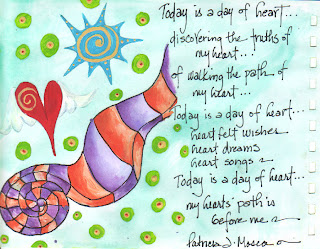 Today is a day of heart...
discovering the truths of
my heart...
of walking the path of
my heart...
Today is a day of heart...
heart felt wishes
heart dreams
heart songs
Today is a day of heart...
my hearts' path is
before me
Patricia J. Mosca